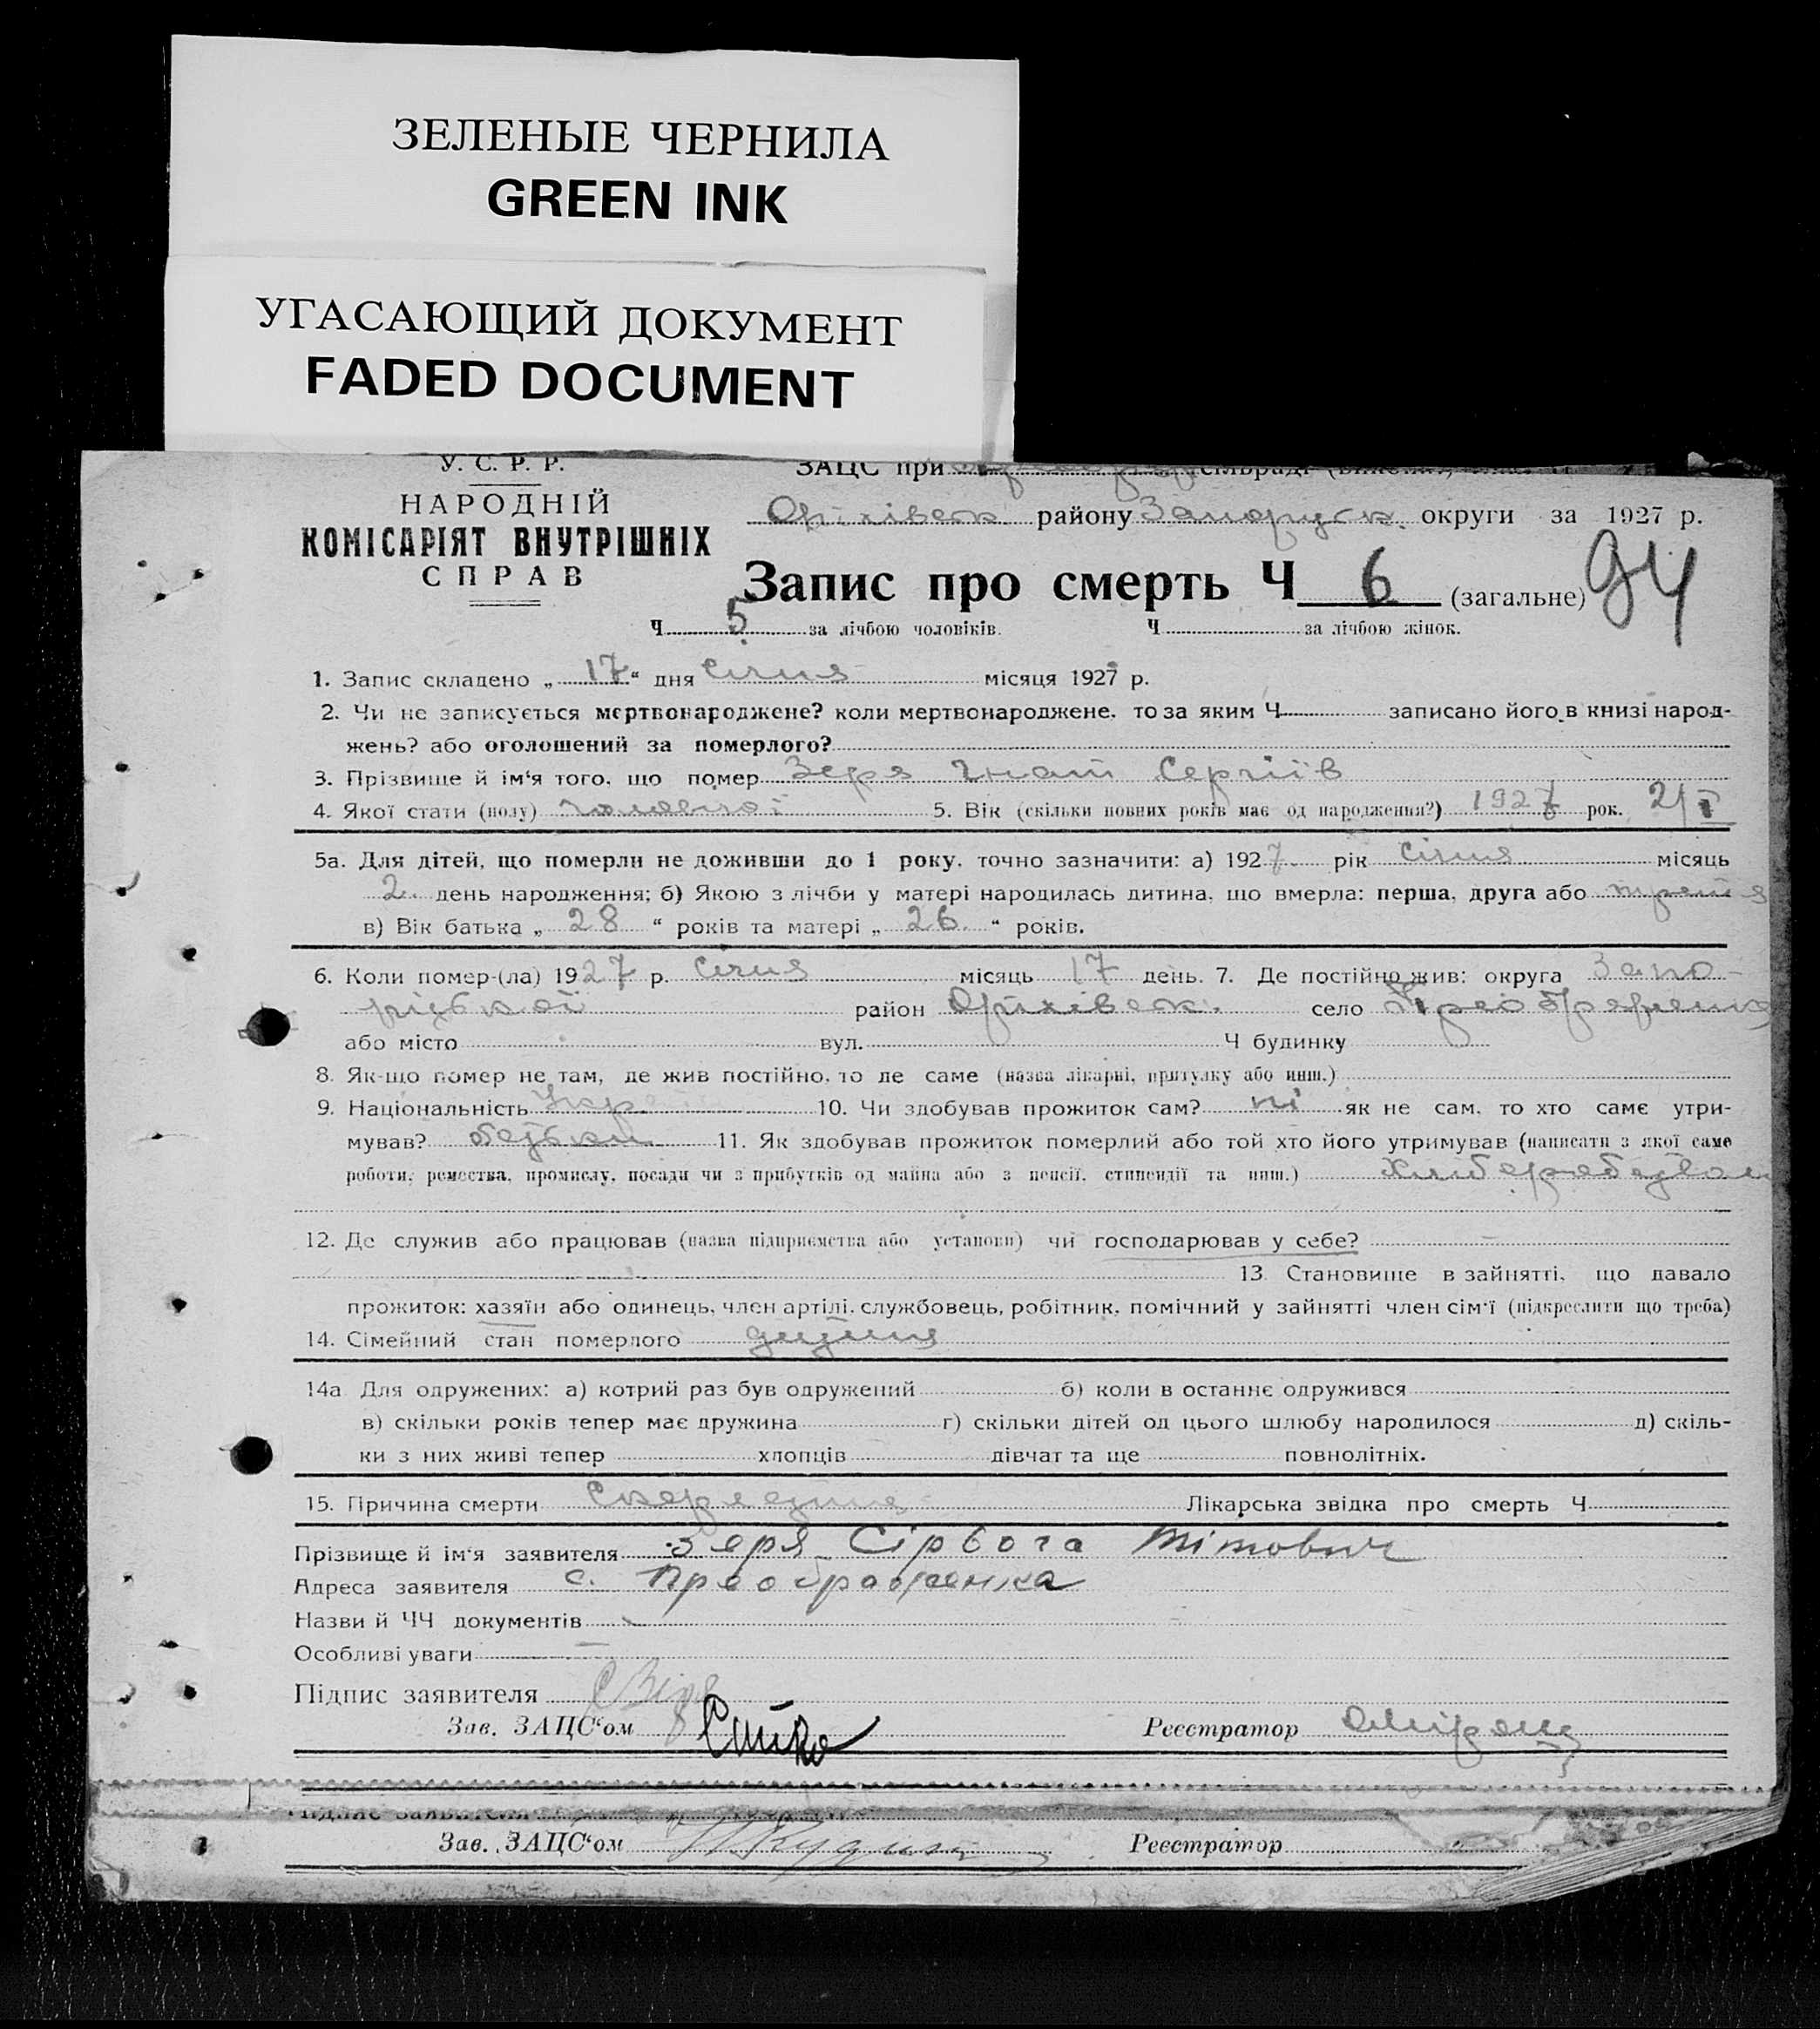 ЗЕЛЕНЫЕ ЧЕРНИЛА
GREEN INK
УГАСАЮЩИЙ ДОКУМЕНТ
FADED DOCUMENT
У. С. Р. Р.
НАРОДНІЙ
КОМІСАРІЯТ ВНУТРІШНІХ
СПРАВ
ЗАЦС при
Оріхівськ району Запорузьк. округи за 1927 р.
Запис про смерть Ч 6 (загальне) 94
Ч 5 за лічбою чоловіків. Ч за лічбою жінок.
1. Запис складено „ 17 “ дня січня місяця 1927 р.
2. Чи не записується мертвонароджене? коли мертвонароджене, то за яким Ч записано його в книзі народ-
жень? або оголошений за померлого?
3. Прізвище й ім‘я того, що помер Зеря Гнат Сергіїв
4. Якої статі (полу) чоловічої 5. Вік (скільки повних років має од народження?) 1927 рок. 2/I
5а. Для дітей, що померли не доживши до 1 року, точно зазначити: а) 1927 рік січня місяць
2 день народження; б) Якою з лічби у матері народилась дитина, що вмерла: перша, друга або третя
в) Вік батька „ 28 “ років та матері „ 26 “ років.
6. Коли помер-(ла) 1927 р. січня місяць 17 день. 7. Де постійно жив: округа Запо-
різької район Оріхівськ. село Преображенка
або місто вул. Ч будинку
8. Як-що помер не там, де жив постійно, то де саме (назва лікарні, притулку або инш.)
9. Національність Укр 10. Чи здобував прожиток сам? ні як не сам, то хто саме утри-
мував? батьки 11. Як здобував прожиток померлий або той хто його утримував (написати з якої саме
роботи, ремества, промислу, посади чи з прибутків од майна або з пенсії, стипендії та инш.)
12. Де служив або працював (назва підприємства або установи) чи господарював у себе? —
13 Становище в зайнятті, що давало
прожиток: хазяїн або одинець, член артілі, службовець, робітник, помічний у зайнятті член сім‘ї (підкреслити що треба)
14. Сімейний стан померлого дитина
14а Для одружених: а) котрий раз був одружений б) коли в останнє одружився
в) скільки років тепер має дружина г) скільки дітей од цього шлюбу народилося д) скіль-
ки з них живі тепер хлопців дівчат та ще повнолітніх.
15. Причина смерти Лікарська звідка про смерть Ч
Прізвище й ім‘я заявителя Зеря Сірьога Тітович
Адреса заявителя с. Преображенка
Назви й ЧЧ документів
Особливі уваги —
Підпис заявителя
Зав. ЗАЦС‘ом Реєстратор
Підпис заявителя
Зав. ЗАЦС‘ом Реєстратор